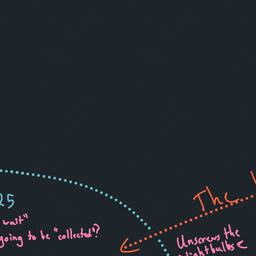 25
The
wait"
going to be "collected"?
Unscrews the
lightbulbs